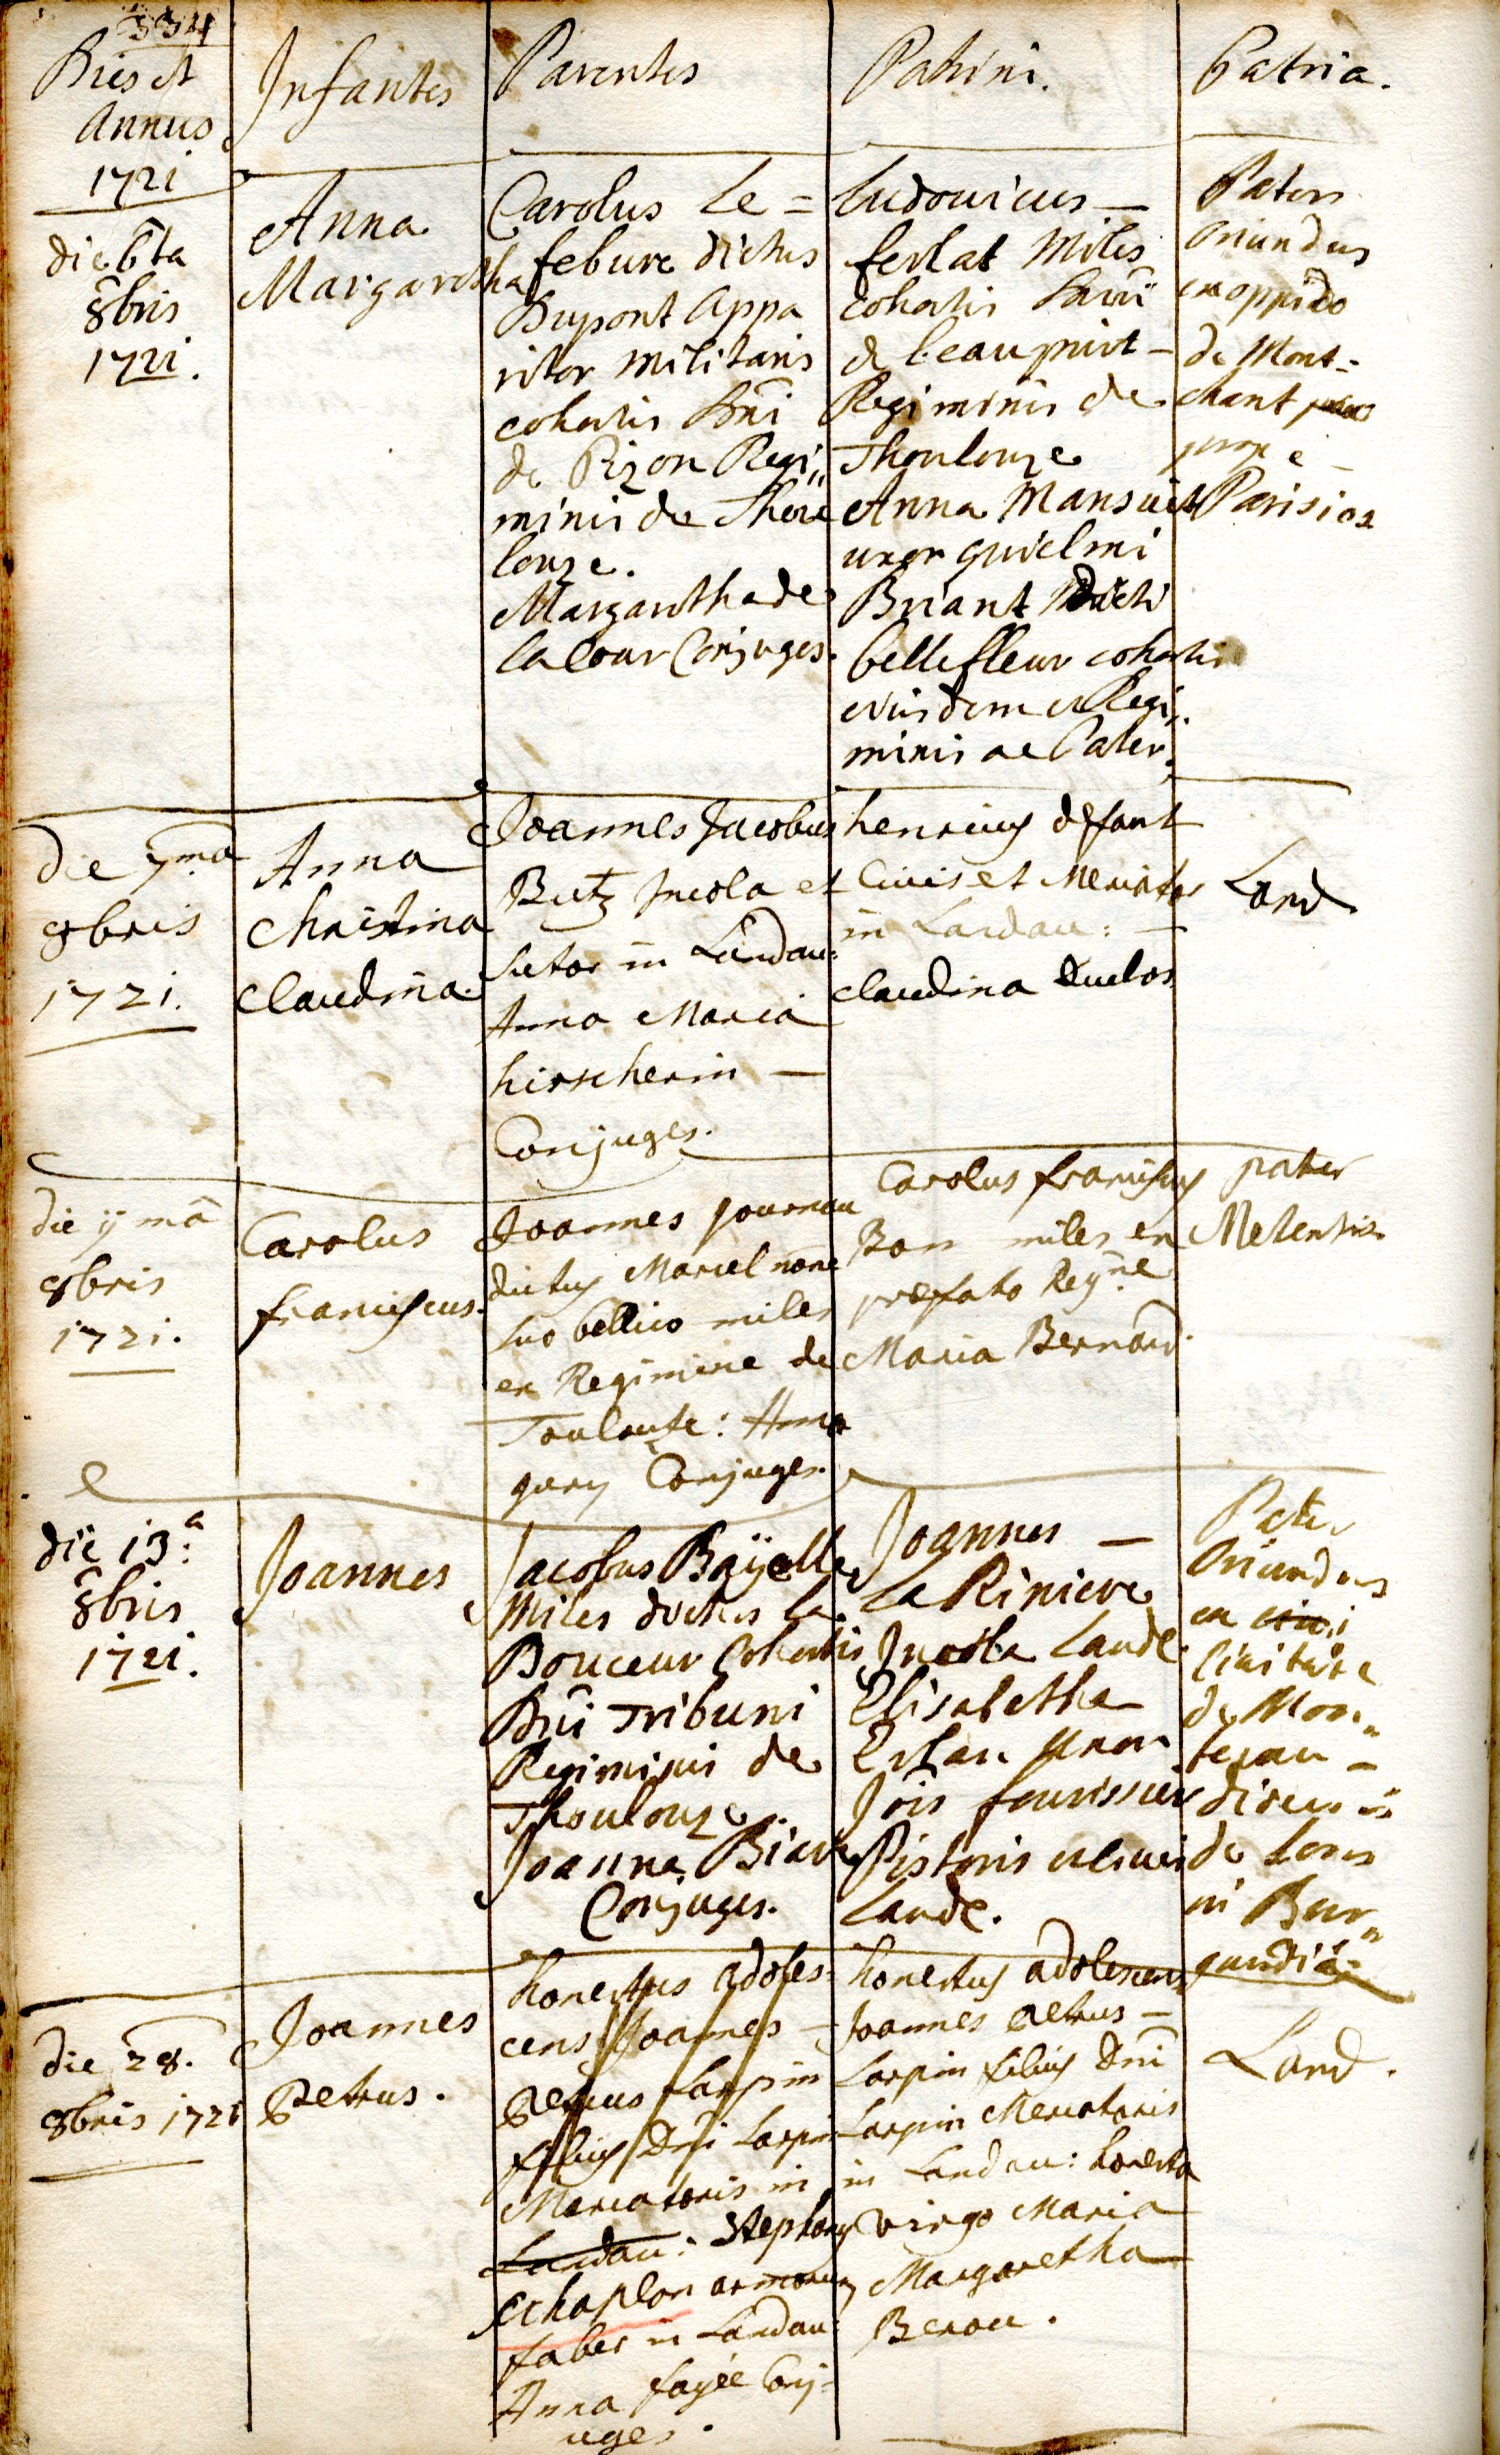 334
Dies et
Annus
1721
Infantes
Parentes
Patrini.
Patria.
die 6ta
8bris
1721.
Anna
Margaretha
Carolus Le=
febure dictus
Dupont Appa
ritor militaris
cohortis Dni
de Pizon Regi„
minis de Thou
louze.
Margaritha de
la Cour Conjuges.
Ludovicus —
ferlat Miles
cohortis
de beaupuiot —
Regiminis de
Thoulouze
Anna Mansuet
uxor Guielmi
Briant dicti
bellefleur cohortis
eiusdem et Regi„
minis ac Pater.
Pater
oriundus
ex oppido
de Mont=
chant
prope
Parisios
die 7ma
8bris
1721.
Anna
Christina
Claudina.
Joannes Jacobus
Butz Incola et
Sutor in Landau:
Anna Maria
hirscherin —
Conjuges.
henricus defant
Civis et Mercator
in Landau: —
Claudina Duclos
Land
die ij mâ
8bris
1721.
Carolus
franciscus.
Joannes Journau
dictus Marcel noñe
suo bellico miles
ex Regimine de
Toulouse: Anna
guery Conjuges.
Carolus franciscus
Bon miles ex
præfato Regne
Maria Bernard.
pater
Metensis
die 13.a
8bris
1721.
Joannes
Jacobus Bayelle
Miles dictus la
Douceur Cohortis
Dni Tribuni
Regiminis de
Thoulouze.
Joanna Biard
Conjuges.
Joannes —
La Riniere
Incola Landæ
Elisabetha
Erhan Uxor
Jois fourissier
Pistoris et civis
Landæ.
Pater
Oriundus
ex
civitate
de Mon„
tereau —
diœcesis
de Lens
in Bur„
gundiâ.
die 28.
8bris 1721
Joannes
Petrus.
honestus adoles=
cens Joannes —
Petrus Larpin
filius Dni Larpin
Mercatoris in
Landau: Stephanus
Echaplon armorum
faber in Landau:
Anna fayée Conj=
uges.
honestus adolescens
Joannes Petrus —
Larpin filius Dni
Larpin Mercatoris
in Landau: honesta
virgo Maria
Margaretha
Berou.
Land.